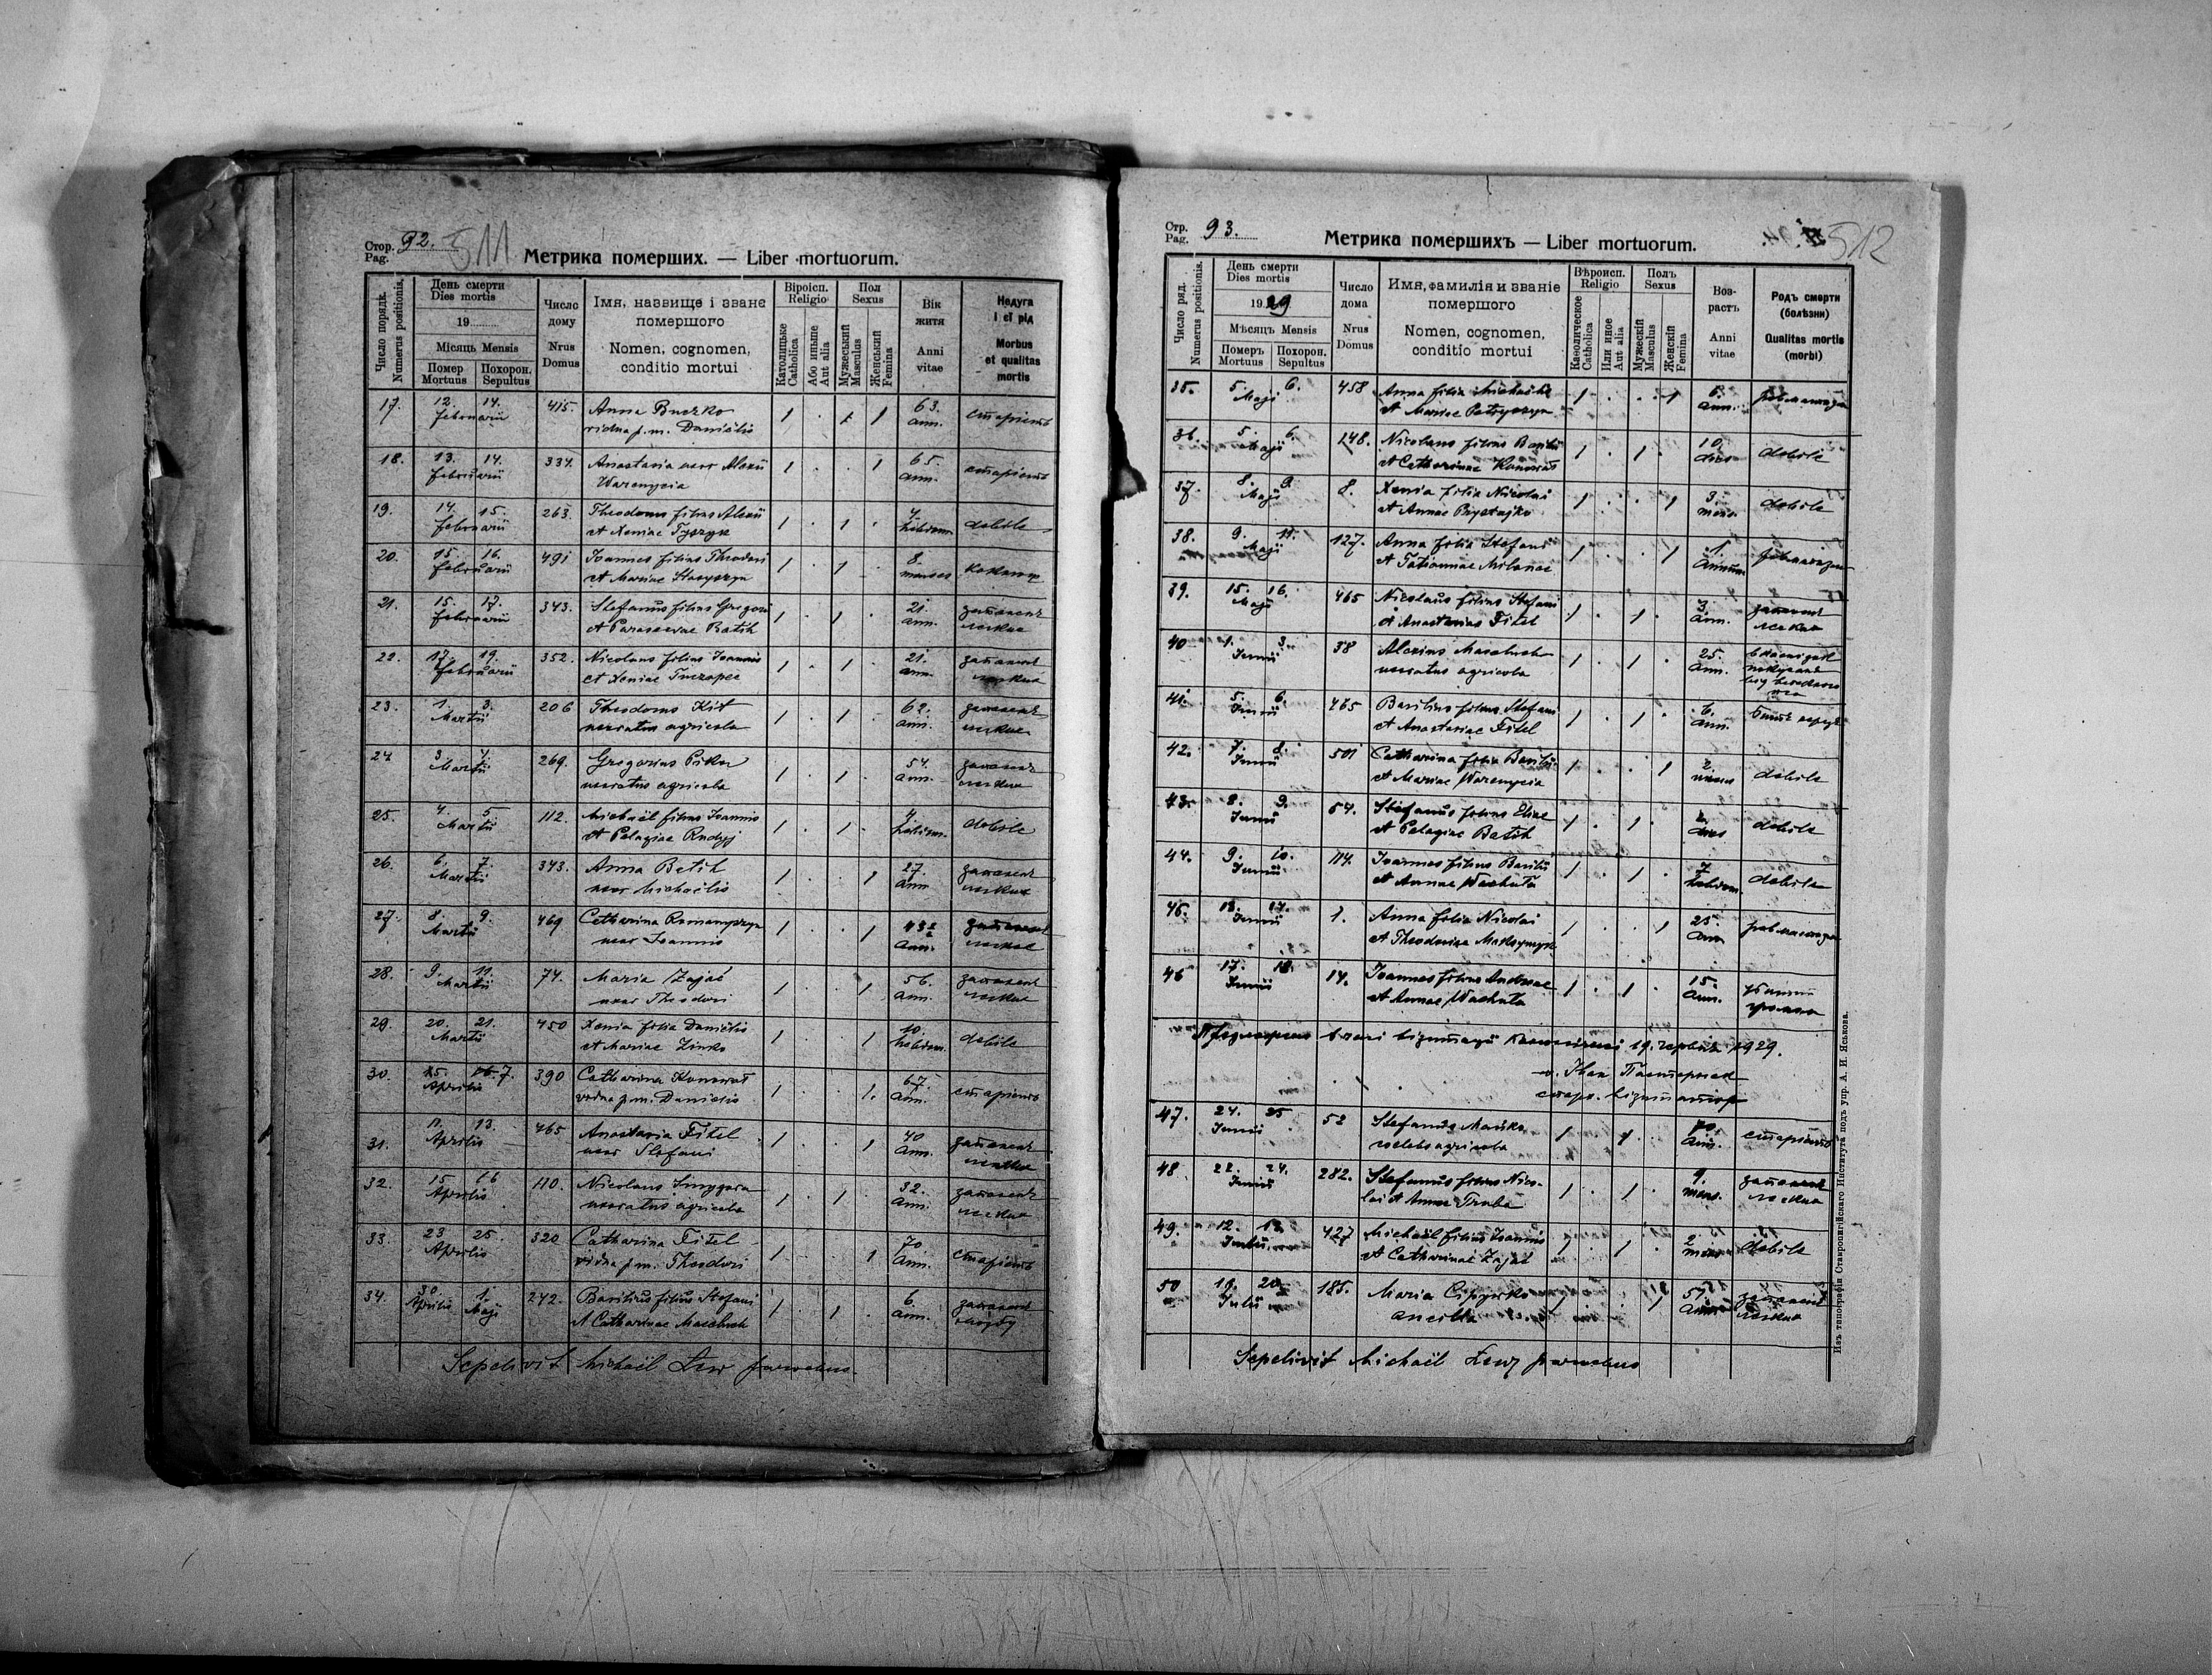 Стор. Pag. 92. 511
Метрика померших. — Liber mortuorum.
Число порядк. Numerus positionis.
День смерти
Dies mortis
19
Місяць Mensis
Помер Mortuus
Похорон. Sepultus
Число дому
Nrus Domus
Імя, назвище і званє помершого
Nomen, cognomen, conditio mortui
Віроісп. Religio
Католицьке Catholica
Або иньше Aut alia
Пол Sexus
Мужеський Masculus
Женський Femina
Вік житя
Anni vitae
Недуга і єї рід
Morbus et qualitas mortis
17. 12. 14. februarii 415. Anna Buczko 1 . 1 63. ann. старість
vidua p.m. Daniělis
18. 13. 14. februarii 334. Anastasia uxor Alexii 1 . . 1 65. ann. старість
Warenycia
19. 14. 15. februarii 263. Theodorus filius Alexii 1 . 1 . hebdom. debile
et Xeniae Tyszyk
20. 15. 16. februarii 491 Ioannes filius Theodori 1 . 1 . 8. menses коклюш
et Mariae
21. 15. 17. februarii 343. Stefanus filius Gregorii 1 . 1 . 21. ann. запаленє
et Parascevae Batih легких
22. 17. 19. februarii 352. Nicolaus filius Ioannis 1 . 1 . 21. ann. запаленє
et Xeniae легких
23. 1. 3. Martii 206 Theodorus Kit 1 . 1 . 62. ann. запаленє
uxoratus agricola легких
24 3. 4. Martii 269. Gregorius 1 . 1 . 54. ann. запаленє
uxoratus agricola легких
25. 4. 5 Martii 112. Michaël filius Ioannis 1 . 1 . hebdom. debile
et Pelagiae Rudyj
26. 6. 7. Martii 343. Anna Batih 1 . . 1 27. ann запаленє
uxor Michaëlis легких
27. 8. 9. Martii 469 Catharina Romanyszyn 1 . . 1 ann. запаленє
uxor Ioannis легких
28. 9. 11. Martii 74. Maria Zajać 1 . . 1 56. ann. запаленє
uxor Theodori легких
29. 20. 21. Martii 450 Xenia filia Daniělis 1 . . 1 10. hebdom. debile
et Mariae Zinko
30. Aprilis 390 Catharina Konowal 1 . . 1. 67. ann. старість
vidua p.m. Danielis
31. 11. 13. Aprilis 465 Anastasia Fitel 1 . . 1 40 ann. запаленє
uxor Stefani легких
32. 15 16 Aprilis 110. Nicolaus 1 . 1 . 32. ann. запаленє
uxoratus agricola легких
33. 23 25. Aprilis 320 Catharina Fitel 1 . . 1 70 ann. старість
vidua p.m. Theodori
34. 30 Aprilis 1. Maji 242. Basilius filius Stefani 1 1 . 6. ann. запаленє
et Catharinae Maselnek мозгу
Sepelivit Michaël Lew parochus.
Стр. Pag. 93. 512
Метрика помершихъ — Liber mortuorum.
Число ряд. Numerus positionis.
День смерти
Dies mortis
1929
Мѣсяцъ Mensis
Померъ Mortuus
Похорон. Sepultus
Число дома
Nrus Domus
Имя, фамилія и званіе помершого
Nomen, cognomen, conditio mortui
Вѣроисп. Religio
Каѳолическое Catholica
Или иное Aut alia
Полъ Sexus
Мужескій Masculus
Женскій Femina
Воз-растъ
Anni vitae
Родъ смерти (болѣзни)
Qualitas mortis (morbi)
35. 5. 6. Maji 458 Anna filia Michaëlis 1 . . 1 6. ann.
et Mariae Patryszyn
36. 5. 6. Maji 248. Nicolaus filius Basilii 1 . 1 . 10. dies debile
et Catharinae Konowal
37. 8. 9. Maji 8. Xenia filia Nicolai 1 . . 1 3. mens. debile
et Annae Prystajko
38. 9. 11. Maji 127. Anna filia Stefani 1 . . 1 1. annum
et Tatiannae
39. 15. 16. Maji 465 Nicolaus filius Stefani 1 . 1 . 3. ann. запаленє
et Anastasiae Fitel легких
40 1. 3. Iunii 38 Alexius 1 . 1 . 25. ann.
uxoratus agricola
41. 5. 6. Iunii 465 Basilius filius Stefani 1 . 1 . 6. ann.
et Anastasiae Fitel
42. 7. 8. Iunii 501 Catharina filia Basilii 1 . . 1 2. debile
et Mariae Warenycia
43. 8. 9. Iunii 54. Stefanus filius Eliae 1 . 1 . dies debile
et Pelagiae Batih
44. 9. 10. Iunii 114. Ioannes filius Basilii 1 . 1 . 7 hebdom. debile
et Annae Wachula
45. Iunii 1. Anna filia Nicolai 1 . . 1 25. ann
et Theodosiae Maksymyk
46 17. 18. Iunii 14. Ioannes filius Andreae 1 . 1 . 15. ann.
et Annae Wachula
візитації 19. червня 1929.
о. Іван Пастернак
візитатор
47. 24. 25. Iunii 52 Stefanus 1 1 70. ann. старість
coelebs agricola
48. 22. 24. Iunii 282. Stefanus filius Nico- 1 . 1 . 9. mens. запаленє
lai et Annae Truba легких
49. 12. 13. Iulii 427 Michaël filius Ioannis 1 . 1 . 2 mens debile
et Catharinae Zajać
50 19. 20. Iulii 185. Maria 1 . . 1 ann запаленє
ancilla легких
Sepelivit Michaël Lew parochus
Изъ типографіи Ставропигійскаго Института подъ упр. А. И. Яськова.